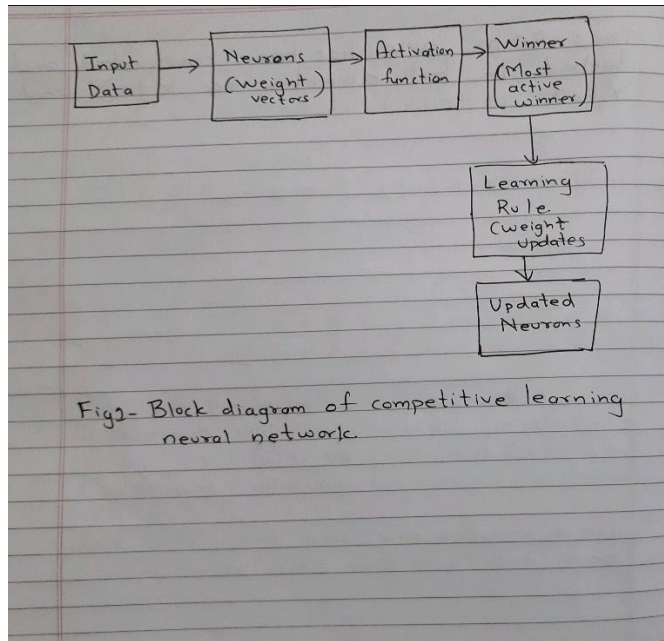 Input
Data
Neurons
(weight
vectors)
Activation
function
Winner
(Most
active
winner)
Learning
Rule
(weight
updates
Updated
Neurons
Fig2- Block diagram of competitive learning
neural network